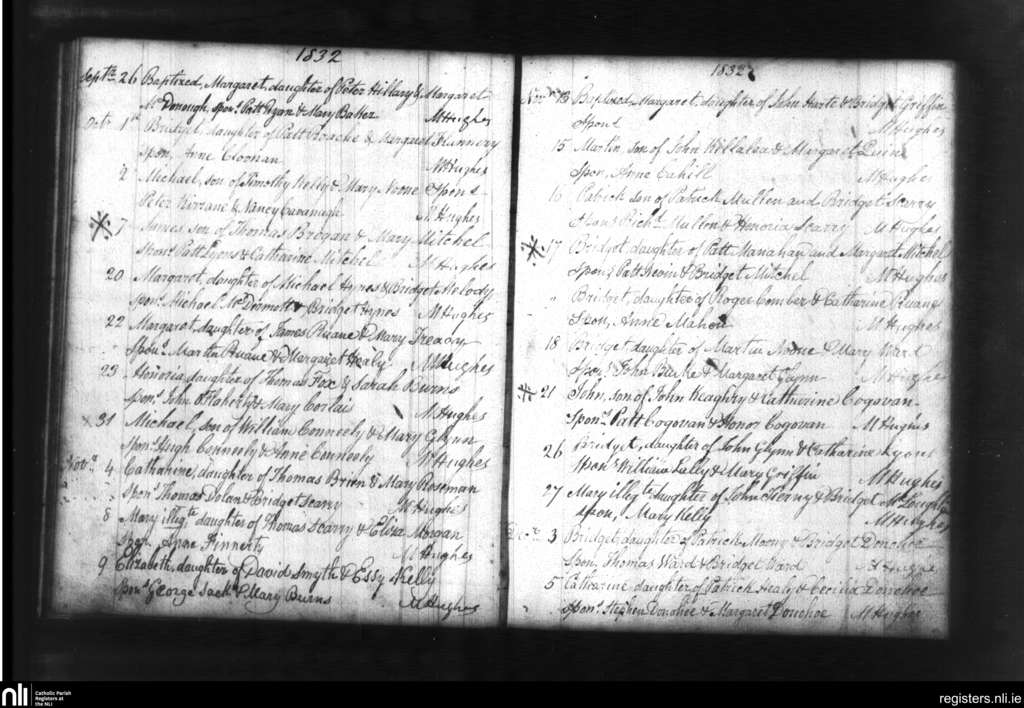 1832
Septr. 26 Baptized, Margaret, daughter of Peter Hillary & Margaret
McDonough, spons. Patt Ryan & Mary Baker M Hughes
Octr. 1st Bridget, daughter of Patt Roache & Margaret Flannery
Spon, Anne Cloonan M Hughes
2 Michael, son of Timothy Kelly & Mary Noone Spons
Peter Kirrane & Nancy Cavanagh M Hughes
7 James son of Thomas Brogan & Mary Mitchel
Spons. Patt Lyons & Catharine Mitchel M Hughes
20 Margaret, daughter of Michael Hynes & Bridget Melody
spons. Michael McDermott & Bridget Hynes M Hughes
22 Margaret, daughter of James Ruane & Mary Treacy
Spons. Martin Ruane & Margaret Healy M Hughes
23 Honoria, daughter of Thomas Fox & Sarah Burns
spons. John OFlaherty & Mary M Hughes
31 Michael, son of William Conneely & Mary Glynn
Spons. Hugh Conneely & Anne Conneely M Hughes
4 Catharine, daughter of Thomas Brien & Mary Roseman
Spons. Thomas Dolan & Bridget Scarry M Hughes
8 Mary illegte. daughter of Thomas Scarry & Eliza Morgan
Spon. Anne Finnerty M Hughes
9 Elizabeth, daughter of David Smyth & Essy Kelly
Spons. George Jack & Mary Burns M Hughes
1832
Novr. 13 Baptized, Margaret, daughter of John Harte & Bridget Griffin
Spons M Hughes
15 Martin son of John Killalea & Margaret Quinn
Spon, Anne Cahill M Hughes
16 Patrick son of Patrick Mullen and Bridget Scarry
Spons Richd. Mullen & Honoria Scarry M Hughes
17 Bridget daughter of Patt Manahan and Margaret Mitchel
Spons Patt & Bridget Mitchel M Hughes
" Bridget, daughter of Roger Comber & Catharine Ruane
Spon, Anne Mahon M Hughes
18 Bridget daughter of Martin Noone & Mary Ward
Spons. John Burke & Margaret Glynn M Hughes
21 John, son of John Keaghry & Catharine Cogovan
Spons. Patt Cogovan & Honor Cogovan M Hughes
26 Bridget, daughter of John Glynn & Catharine Lyons
Spons. William Lally & Mary Griffin M Hughes
27 Mary illegte. daughter of John Kerny & Bridget McLoughlin
Spon, Mary Kelly M Hughes
Decr. 3 Bridget, daughter of Patrick Moony & Bridget Donohoe
Spon, Thomas Ward & Bridget Ward M Hughes
5 Catharine daughter of Patrick Healy & Cecilia Donohoe
Spons. Stephen Donohoe & Margaret Donohoe M Hughes
nli Catholic Parish
Registers at
the NLI
registers.nli.ie